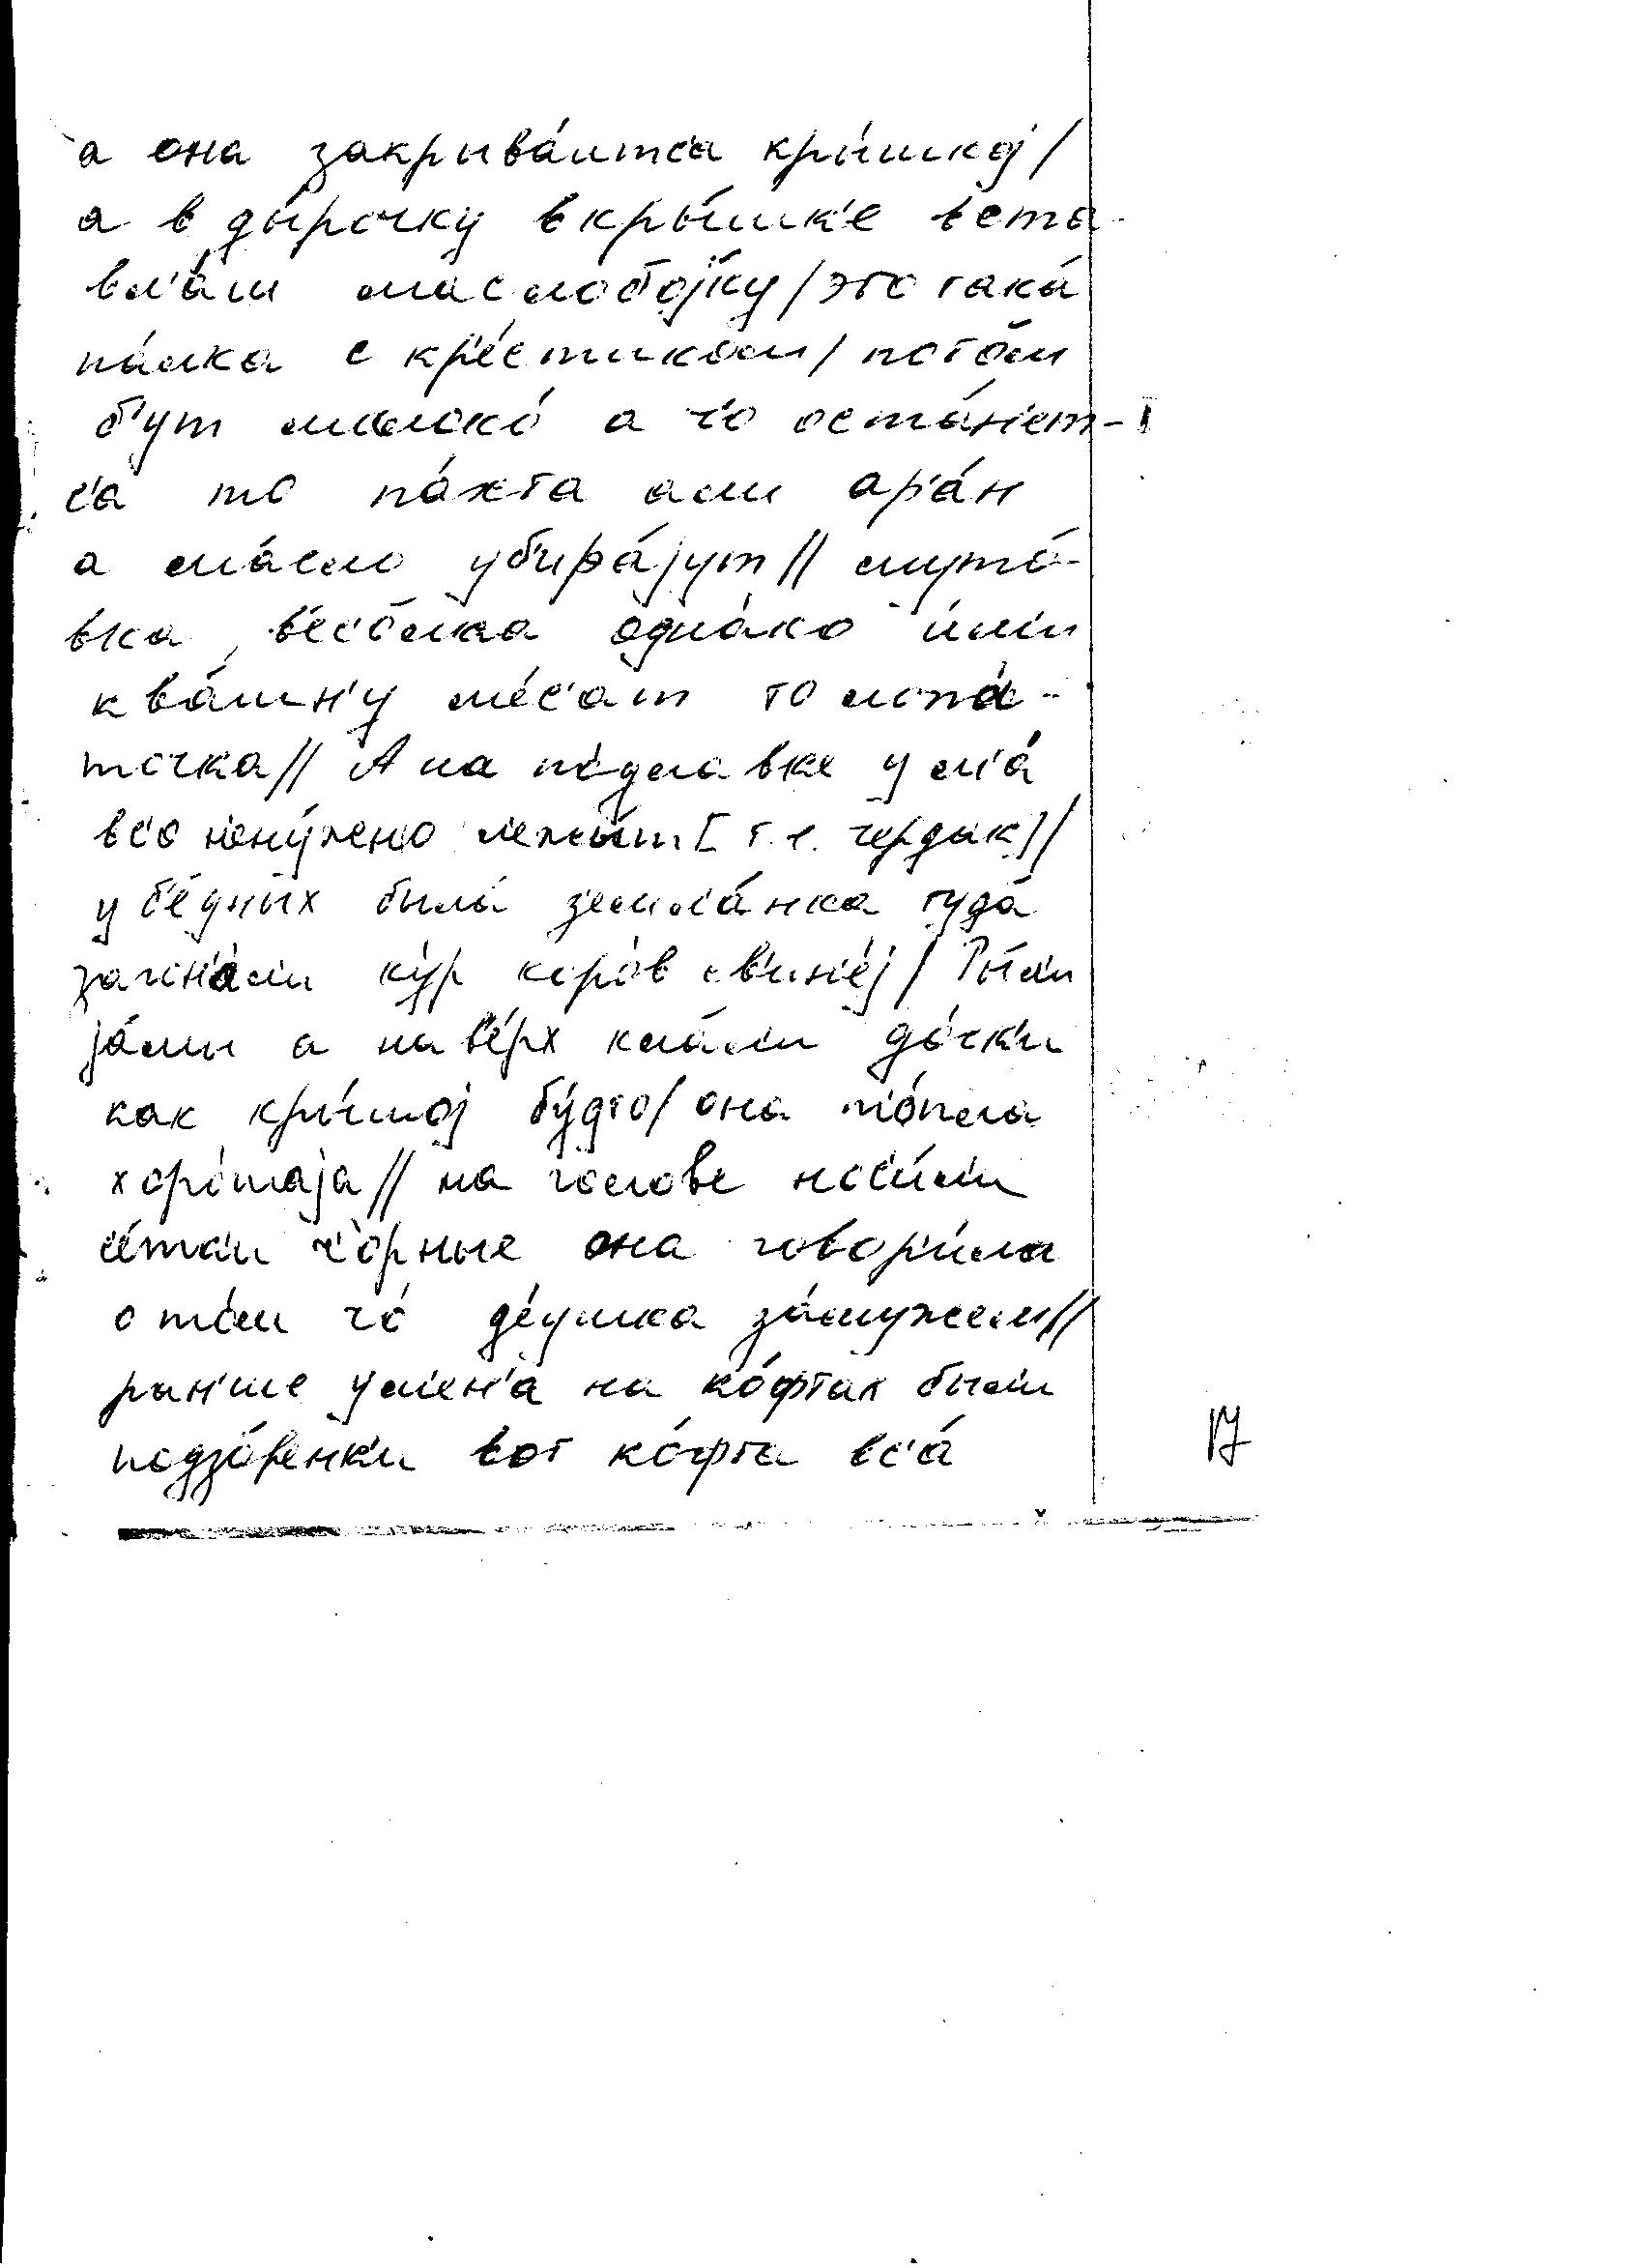 а она закрыва́итс'а кры́шкој/
а в ды́рочку в кры́шк'е вста-
вл'а́ш маслобо́јку/это така́
па́лка с кр'е́стиком/пото́м
б'ут молоко́ а ч'о оста́н'ет-
с'а то па́хта али ар'а́н
а ма́сло уб'ира́јут// муто́-
вка, в'ес'о́лка одна́ко и́м'и
квашн'у́ м'е́с'ат то лопа́-
точка// А на по́длавке у м'а́
вс'о нену́жено лежы́т [т.е. чердак]/
у б'е́дных была́ землʼа́нка туда́
загон'а́ли ку́р коро́в св'ин'е́ј/ Ры́ли
јáмы а нав'е́рх кла́ли до́ск'и
как кры́шој бу́дто/ она т'о́пла
хоро́шаја// на голове нос'и́ли
с'е́тки ч'о́рные она говор'и́ла
о то́м ч'о́ д'е́ушка за́мужем//
ран'ше у м'ен'а на ко́фтах были
подзо́ренк'и вот ко́фта вс'а́
17